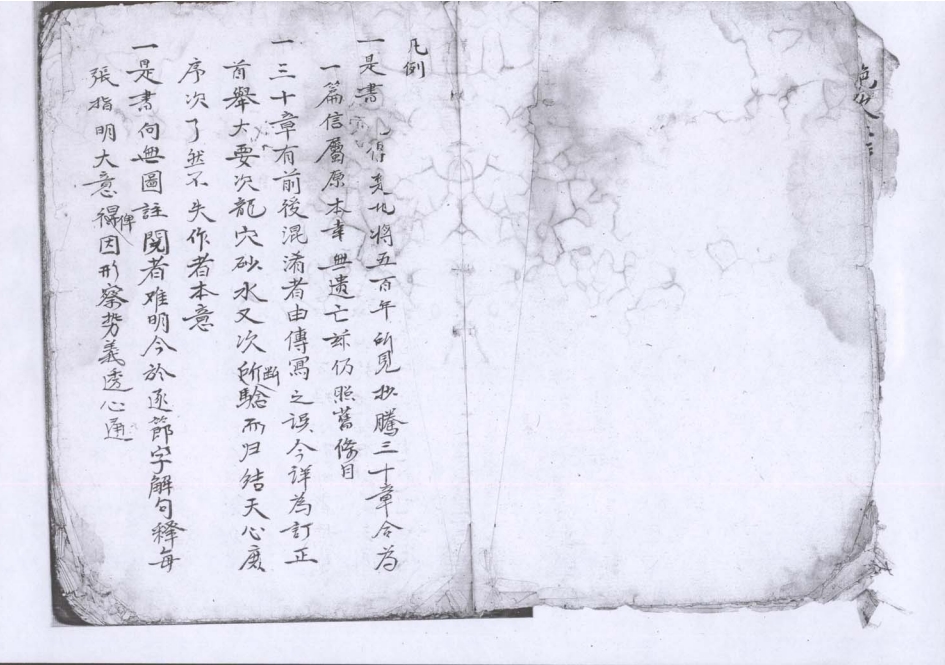 凡例
一是書得將五百年所見抄騰三十章合為
一篇信屬原本幸無遺亡茲仍照舊條目
一三十章有前後混淆者由傳寫之误今详為訂正
首舉大要次龍穴砂水又次断驗而归結天心庶
序次了然不失作者本意
一是書向無圖註閱者难明今於逐節字解句釋每
張指明大意俾因形察势義透心通